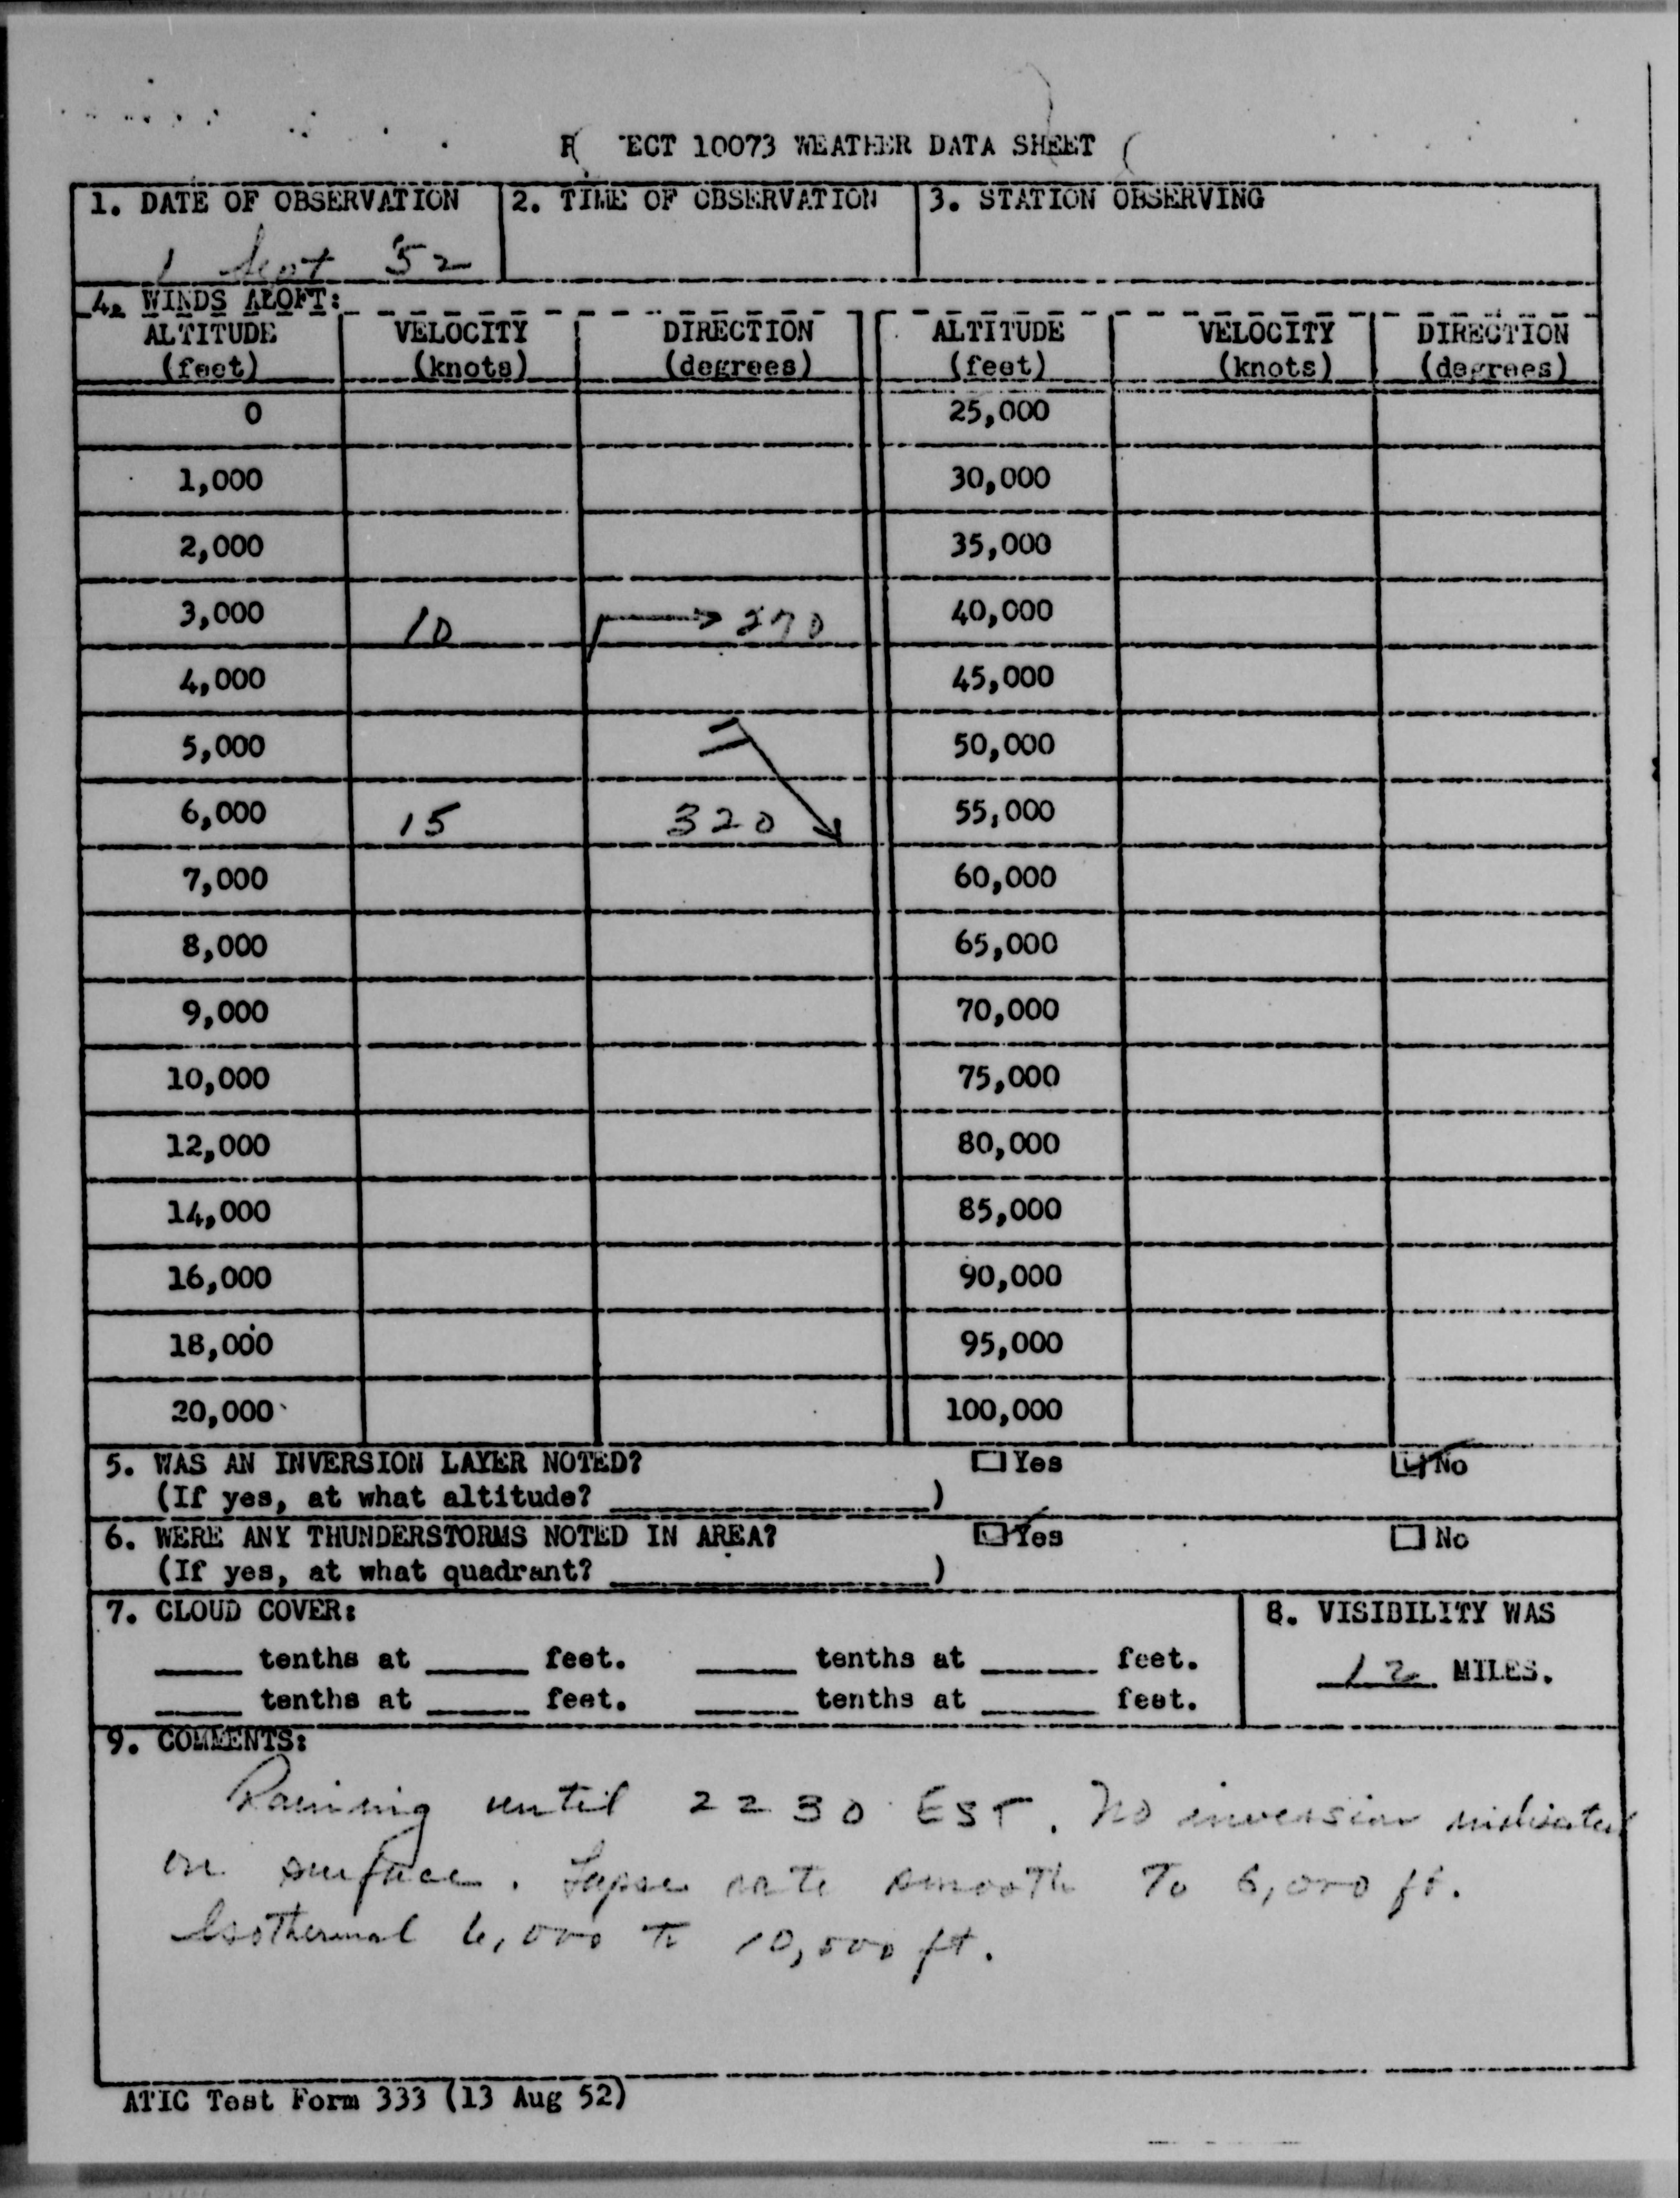 ECT 10073 WEATHER DATA SHEET
1. DATE OF OBSERVATION 2. TIME OF OBSERVATION 3. STATION OBSERVING
1 Sept 52
4. WINDS ALOFT:
ALTITUDE VELOCITY DIRECTION ALTITUDE VELOCITY DIRECTION
(feet) (knots) (degrees) (feet) (knots) (degrees)
0 25,000
1,000 30,000
2,000 35,000
3,000 10 270 40,000
4,000 45,000
5,000 50,000
6,000 15 320 55,000
7,000 60,000
8,000 65,000
9,000 70,000
10,000 75,000
12,000 80,000
14,000 85,000
16,000 90,000
18,000 95,000
20,000 100,000
5. WAS AN INVERSION LAYER NOTED? Yes No
(If yes, at what altitude? )
6. WERE ANY THUNDERSTORMS NOTED IN AREA? Yes No
(If yes, at what quadrant? )
7. CLOUD COVER: 8. VISIBILITY WAS
tenths at feet. tenths at feet. 12 MILES.
tenths at feet. tenths at feet.
9. COMMENTS:
Raining until 2230 EST. No inversion indicated
on surface. Lapse rate smooth To 6,000 ft.
Isothermal 6,000 to 10,000 ft.
ATIC Test Form 333 (13 Aug 52)